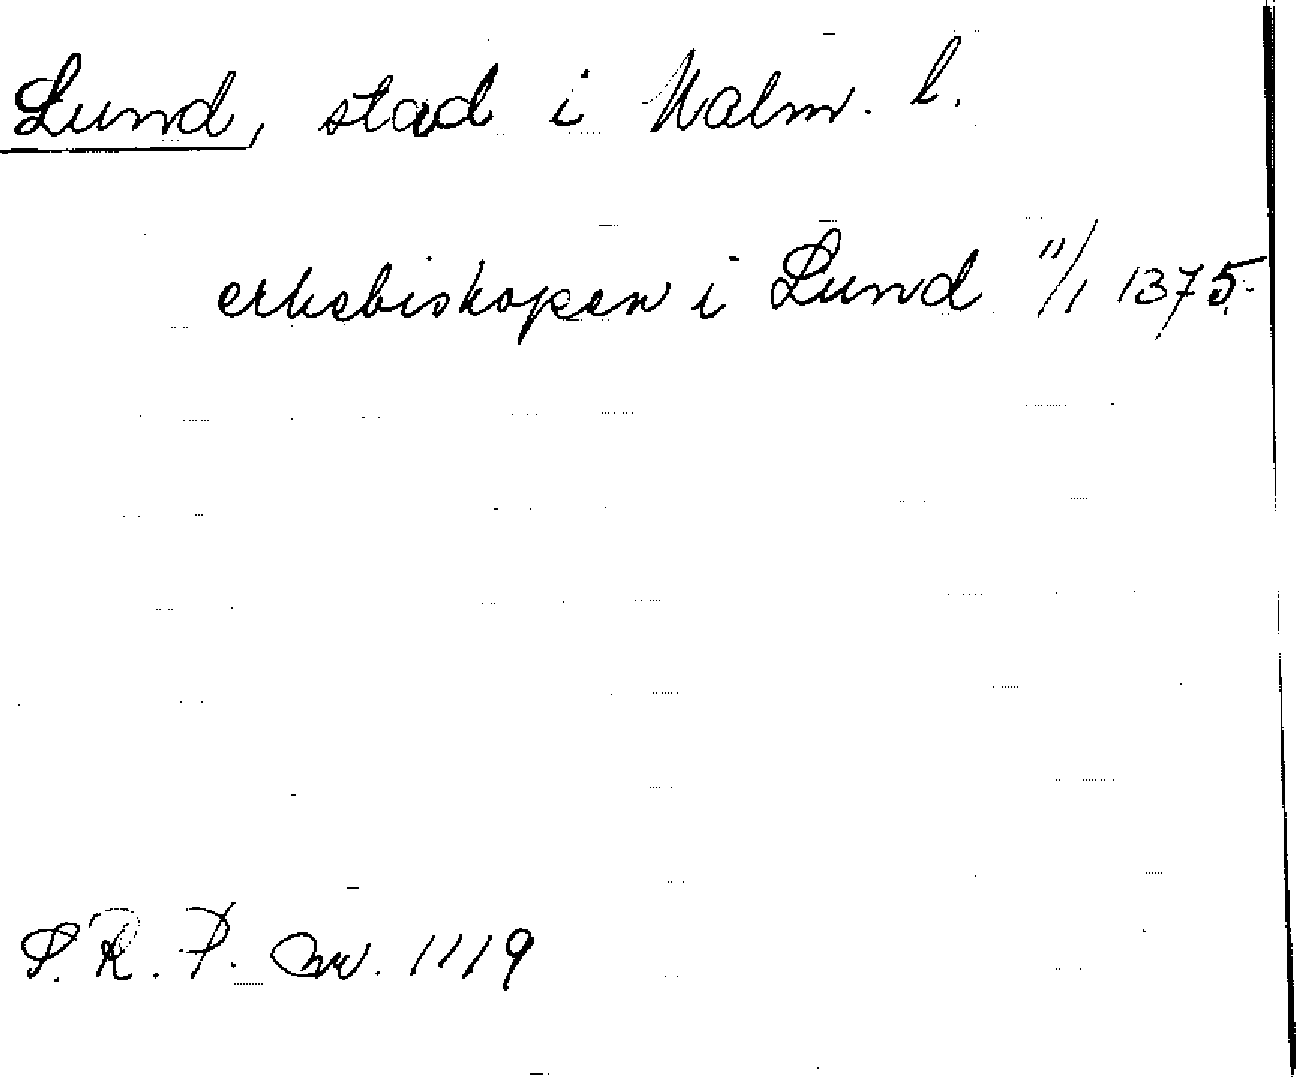 Lund, stad i Malm. l.
erkebiskopen i Lund 11/1 1375.
S. R. P. nr. 1119